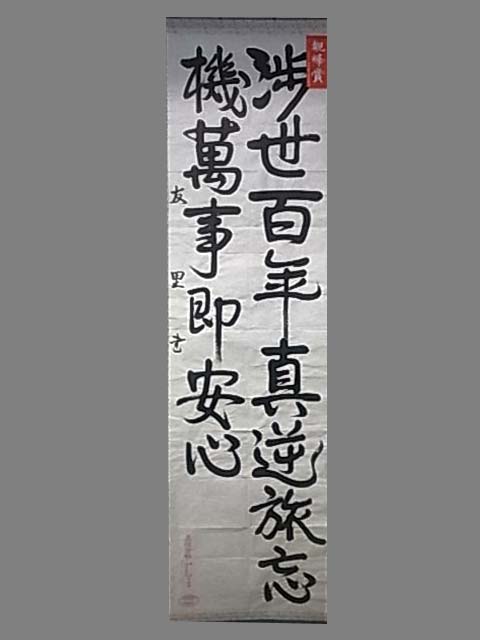 涉世百年真逆旅忘
機萬事即安心
友里书
親婦賞